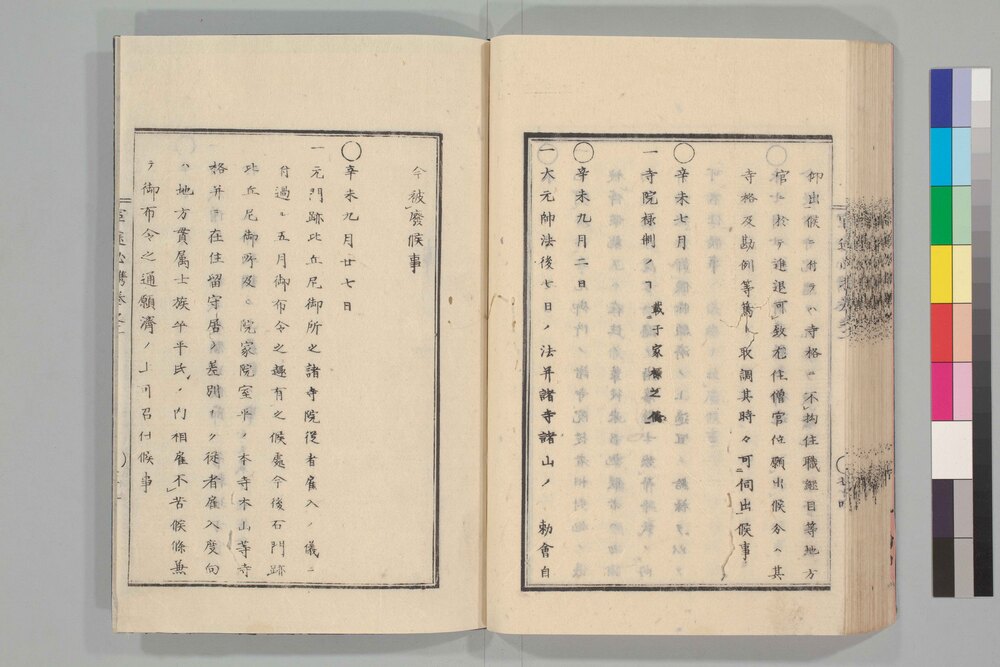 御出候ニ付テハ寺格ニ不拘住職継目等地方
官ニ於テ進退可致尤住僧官位願出候分ハ其
寺格及勘例等篤ト取調其時々可伺出候事
○辛未七月
一寺院禄制ノ 載于家禄之偏
○辛未九月二日
一大元帥法後七日ノ法并諸寺諸山ノ 勅會自
今被廢候事
○辛未九月廿七日
一元門跡比丘尼御所之諸寺院従者雇入ノ儀ニ
付過ル五月御布令之趣有之候處今後右門跡
比丘尼御所及ヒ院家院室平ノ本寺本山等寺
格并在住留守居ノ差別ナク従者雇入度向
ハ地方貫属士族卒平民ノ内相雇不苦候條兼
テ御布令之通願濟ノ上可召仕候事